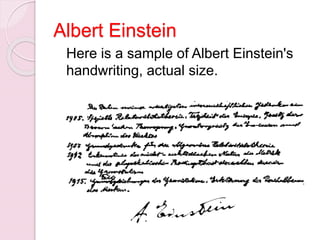 Albert Einstein
Here is a sample of Albert Einstein's
handwriting, actual size.
Die Daten meiner wichtigsten wissenschaftlichen Gedanken
1905. Spezielle Relativitätstheorie, Trägheit der Energie, Gesetz der
Brown'schen Bewegung, der Emission und
Absorption des Lichtes
1907 Grundgedanke für die allgemeine Relativitätstheorie
1912 Erkenntnis der nicht-euklidischen Natur der Metrik
und der physikalischen Bedingtheit derselben
die Gravitation
1915. Feldgleichungen der Gravitation. Erklärung der
des Merkur.
A. Einstein